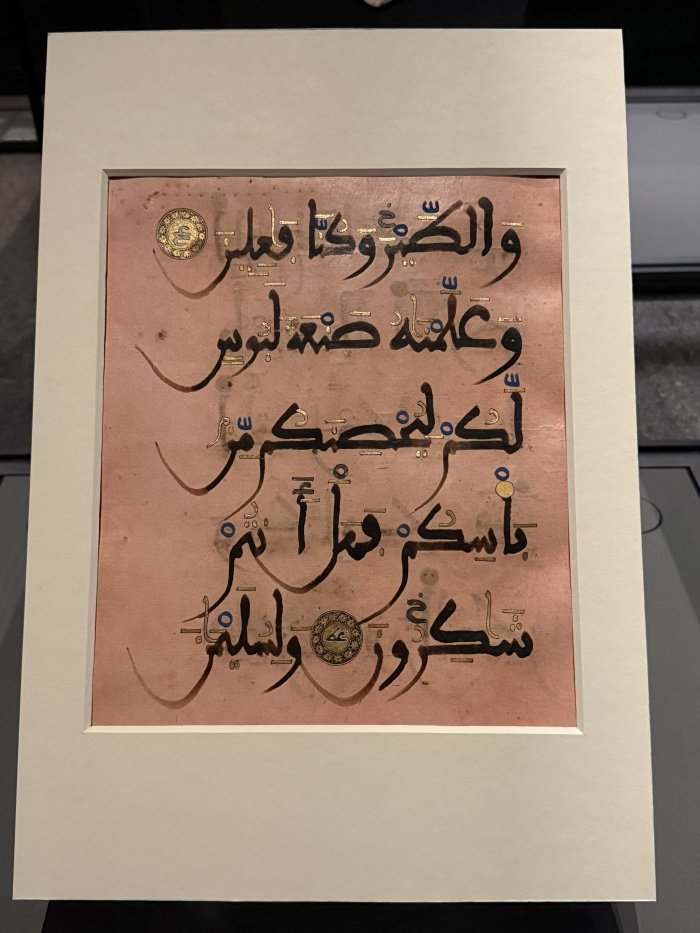 وَالطَّيْرَ وَكُنَّا فَٰعِلِينَ
وَعَلَّمْنَٰهُ صَنْعَةَ لَبُوسٍ
لَّكُمْ لِيُحْصِنَكُم مِّن
بَأْسِكُمْ فَهَلْ أَنتُمْ
شَٰكِرُونَ وَلِسُلَيْمَٰنَ